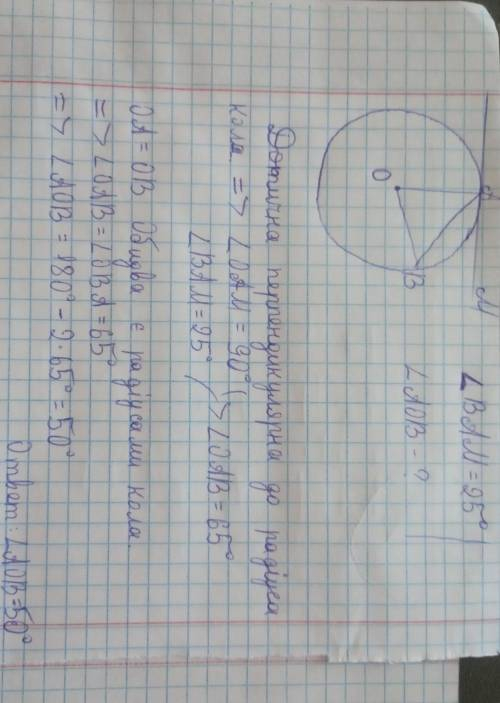 ∠BAM = 25°
∠AOB - ?
A
M
O
B
Дотична перпендикулярна до радіуса
кола => ∠OAM = 90°
∠BAM = 25° => ∠OAB = 65°
OA = OB Обидва є радіусами кола.
=> ∠OAB = ∠OBA = 65°
=> ∠AOB = 180° - 2·65° = 50°
Ответ: ∠AOB = 50°